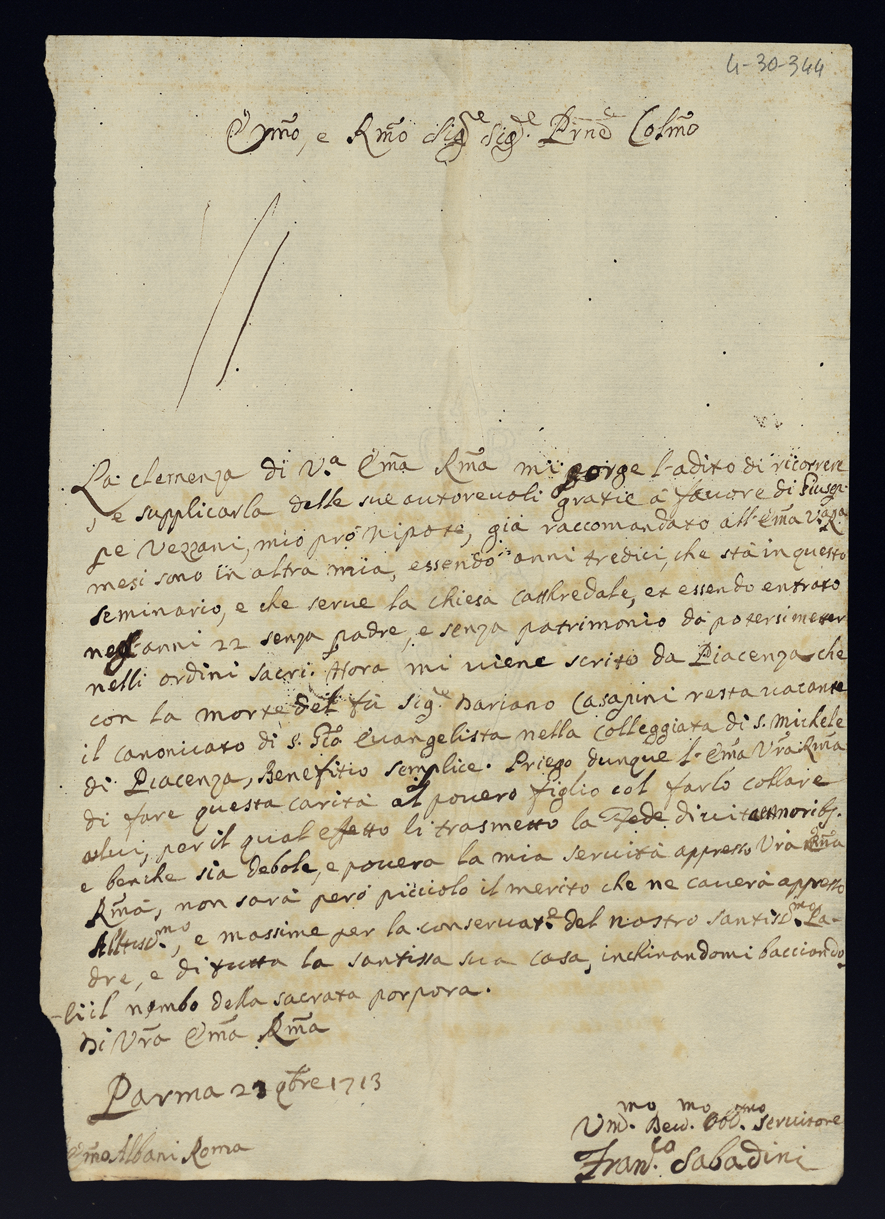 4-30-344
Emõ, e Rmõ Sig.e Sig.e Prne Colmõ
La clemenza di V.a Emã Rmã mi porge l'adito di ricorrere
, e supplicarla delle sue autorevoli gratie à favore di Giusep-
pe Vezzani, mio pro Nipote, già raccomandato all'Emã V.a R.ma
mesi sono in altra mia, essendo anni tredici, che stà in questo
seminario, e che serve la chiesa Catthredale, et essendo entrato
negl'anni 22 senza padre, e senza patrimonio da potersi metter
nelli ordini sacri. Hora mi viene scrito da Piacenza che
con la morte del fù Sig.e Mariano Casapini resta vacante
il canonicato di S. Gio Evangelista nella Colleggiata di S. Michele
di Piacenza, Benefitio semplice. Priego dunque l'Emã Vrã Rmã
di fare questa carità al povero figlio col farlo collare
, per il qual effetto li trasmetto la Fede di vita
e benche sia debole, e povera la mia servitù appresso Vrã Emã
Rmã, non sarà però picciolo il merito che ne caverà appresso
Altiss.mo, e massime per la conservat.e del nostro santiss.mo Pa-
dre, e di tutta la santissa sua casa, inchinandomi bacciando-
li il nembo della sacrata porpora.
Di Vrã Emã Rmã
Parma 21 9bre 1713
Um.mo Dev.mo Obl.mo servitore
Emõ Albani Roma
Fran.co Sabadini